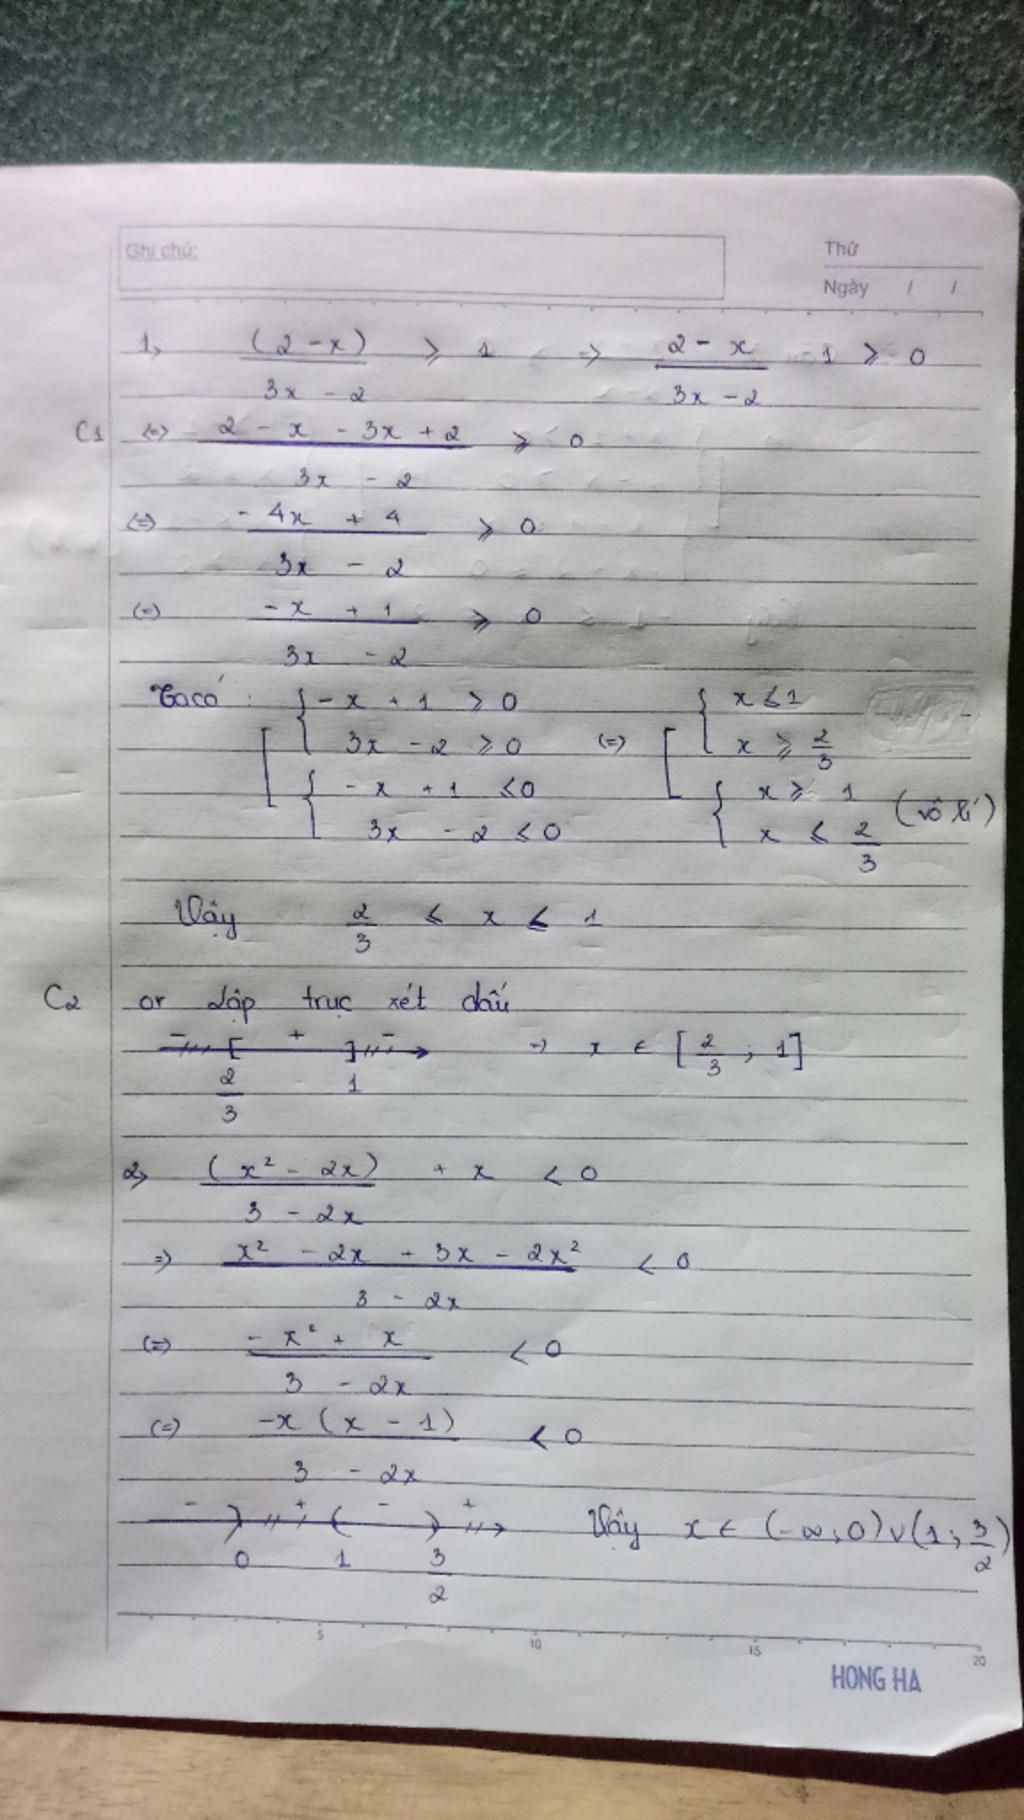 Ghi chú:
Thứ
Ngày / /
1, (2 - x) / 3x - 2 ≥ 1 => 2 - x / 3x - 2 1 ≥ 0
C1 (=) 2 - x - 3x + 2 / 3x - 2 ≥ 0
(=) - 4x + 4 / 3x - 2 ≥ 0
(=) - x + 1 / 3x - 2 ≥ 0
Ta có: [ { - x + 1 ≥ 0 (=) [ { x ≤ 1
3x - 2 ≥ 0 x ≥ 2/3
{ - x + 1 ≤ 0 { x ≥ 1 (vô lí)
3x - 2 ≤ 0 x ≤ 2/3
Vậy 2/3 ≤ x ≤ 1
C2 or Lập trục xét dấu
- [ + ] - => x ∈ [2/3 ; 1]
2/3 1
2, (x² - 2x) / 3 - 2x + x < 0
=> x² - 2x + 3x - 2x² / 3 - 2x < 0
(=) - x² + x / 3 - 2x < 0
(=) -x (x - 1) / 3 - 2x < 0
- ) + ( - ) + Vậy x ∈ (-∞; 0) ∪ (1; 3/2)
0 1 3/2
5 10 15 20
HONG HA